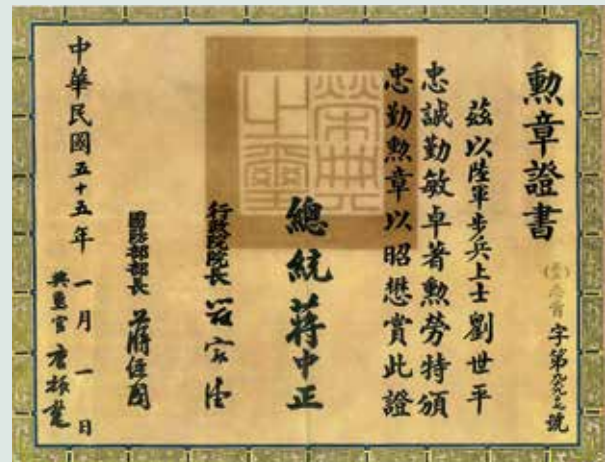 勲章證書
字第
號
茲以陸軍步兵上士劉世平
忠誠勤敏卓著勲勞特頒
忠勤勲章以昭懋賞此證
榮典之璽
總統蔣中正
行政院院長
國防部部長 蔣經國
中華民國五十五年一月一日
典璽官